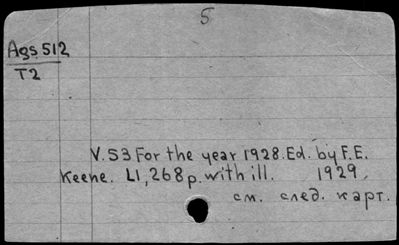 5
Ags 512
T2
V.53 For the year 1928. Ed. by F.E.
Keene. LI, 268 p. with ill. 1929
см. след. карт.